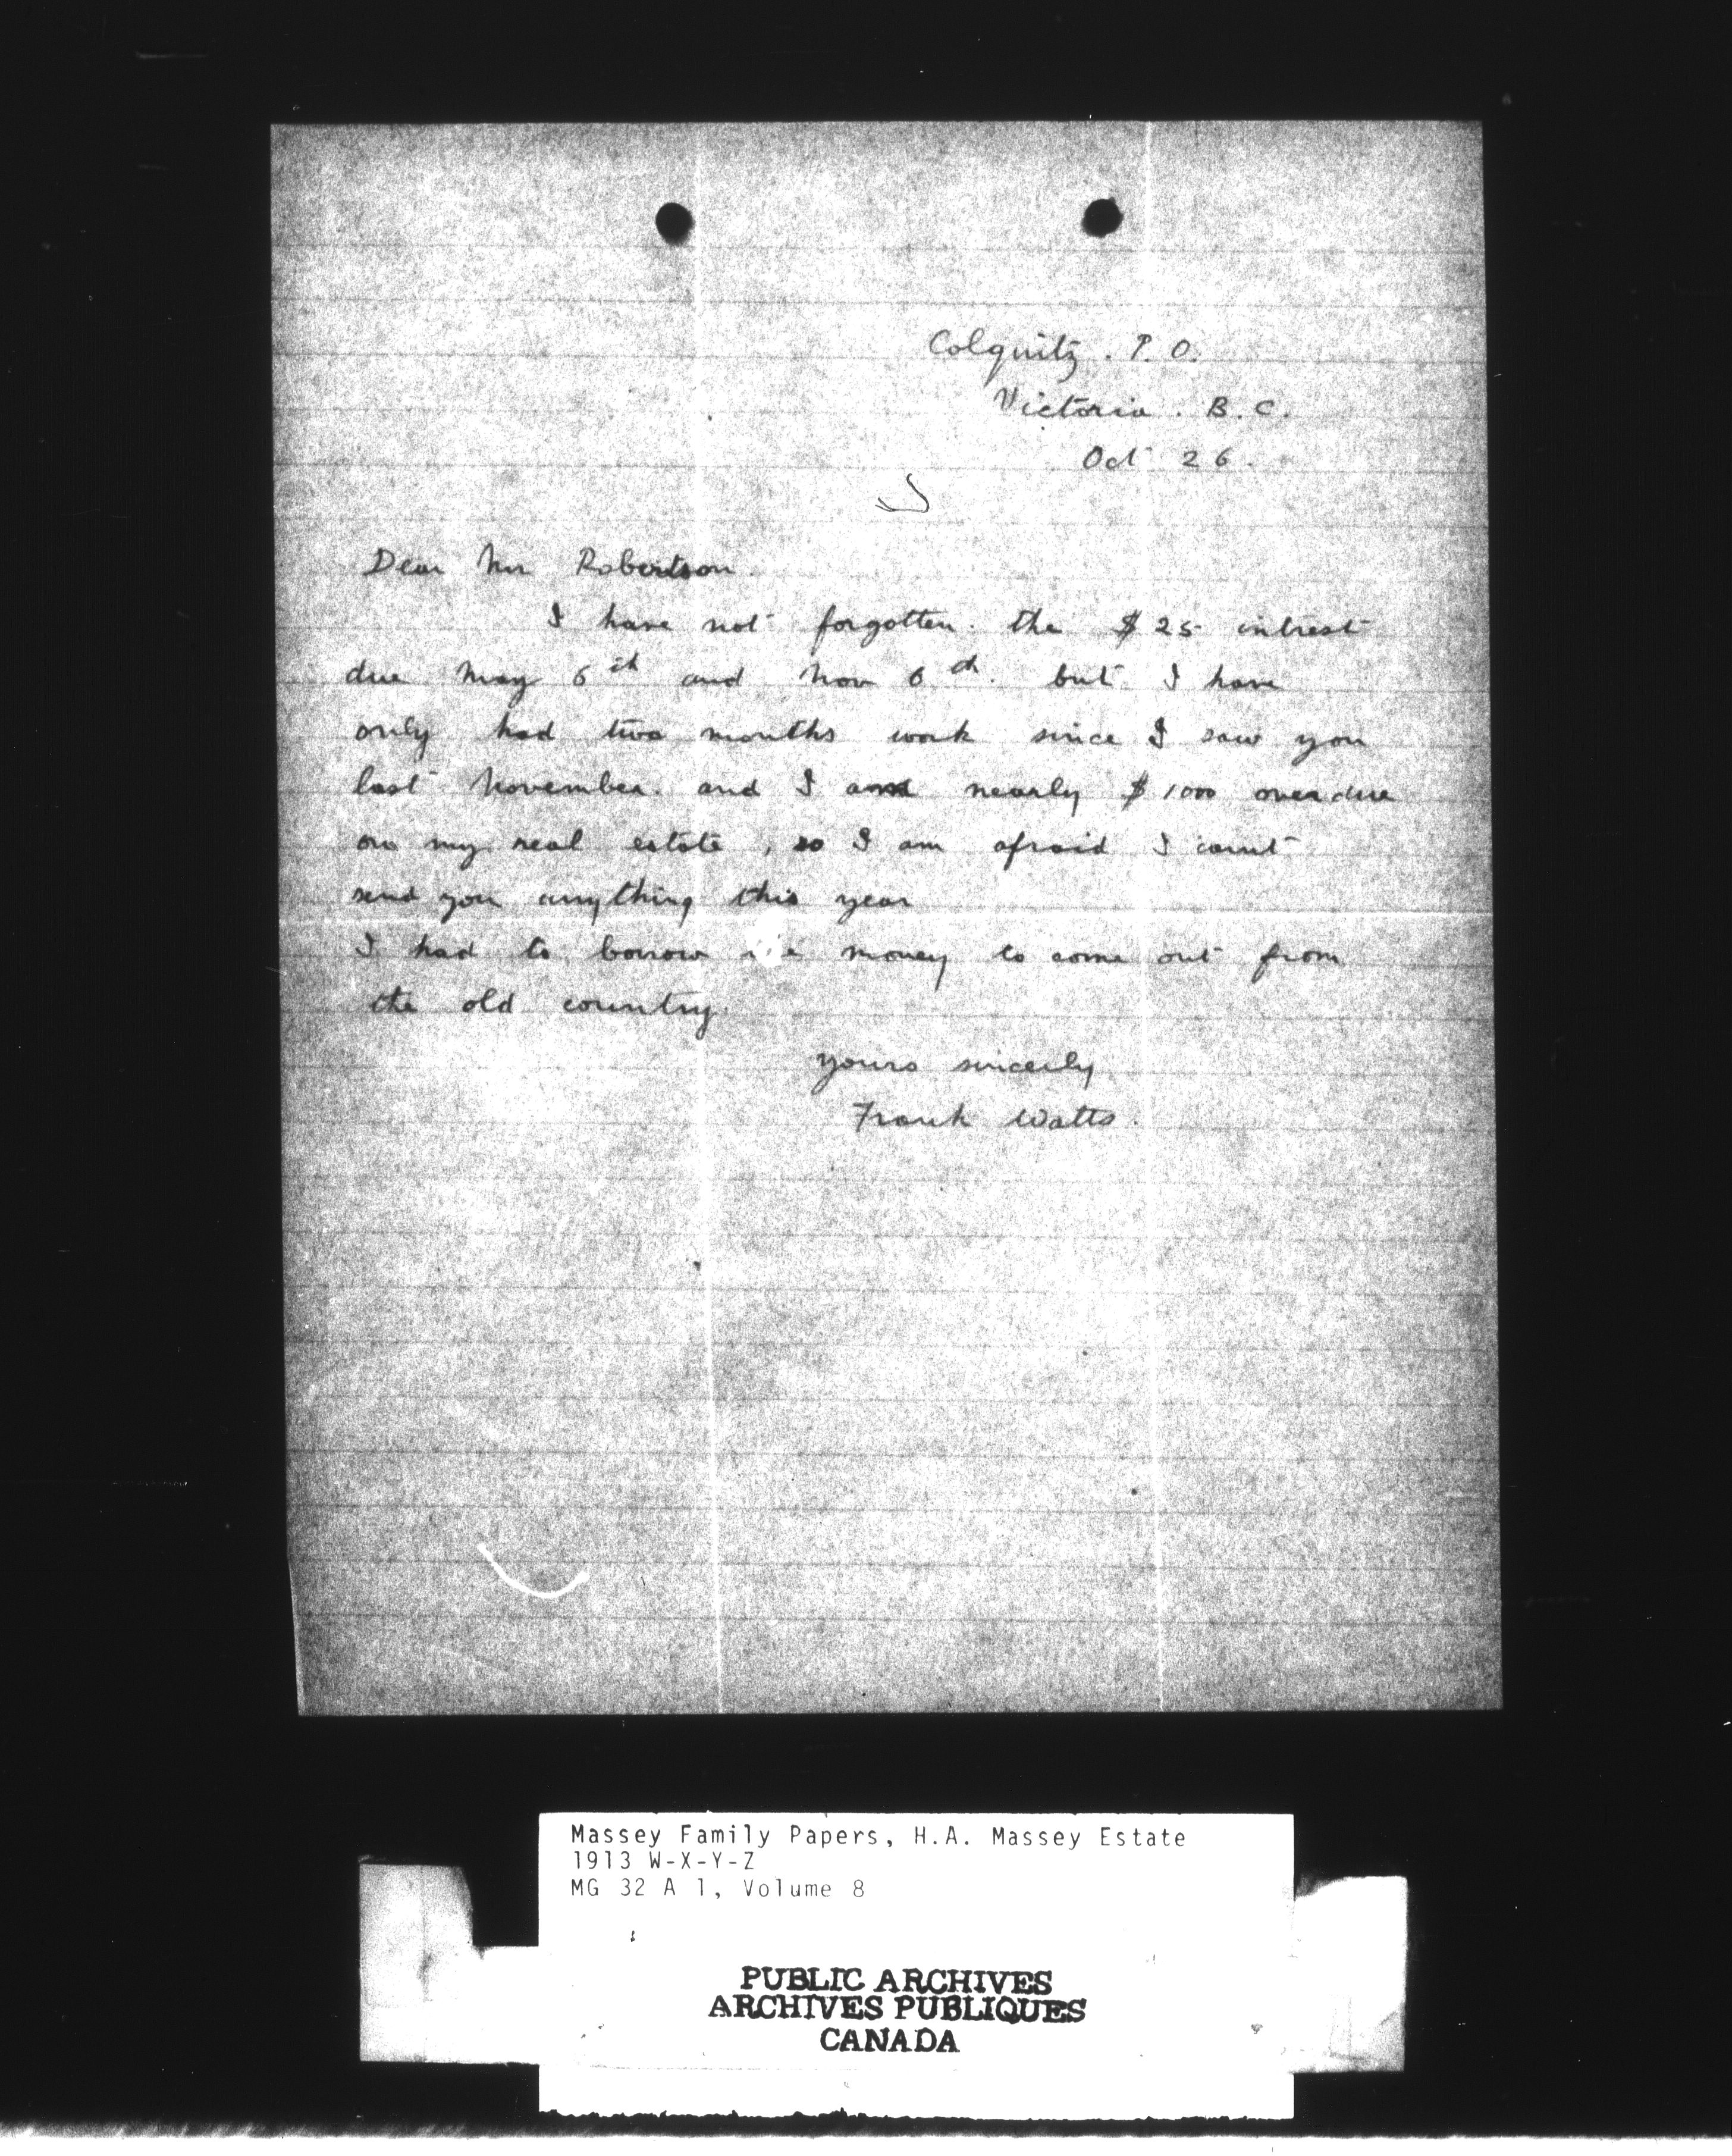 Colquitz. P. O.
Victoria. B. C.
Oct 26.
Dear Mr Robertson.
I have not forgotten. the $25 intrest
due May 6th and Nov 6th. but I have
only had two months work since I saw you
last November. and I am nearly $1000 overdue
on my real estate, so I am afraid I carnt
send you anything this year
I had to borrow the money to come out from
the old country.
yours sincerly
Frank Watts.
Massey Family Papers, H.A. Massey Estate
1913 W-X-Y-Z
MG 32 A 1, Volume 8
PUBLIC ARCHIVES
ARCHIVES PUBLIQUES
CANADA